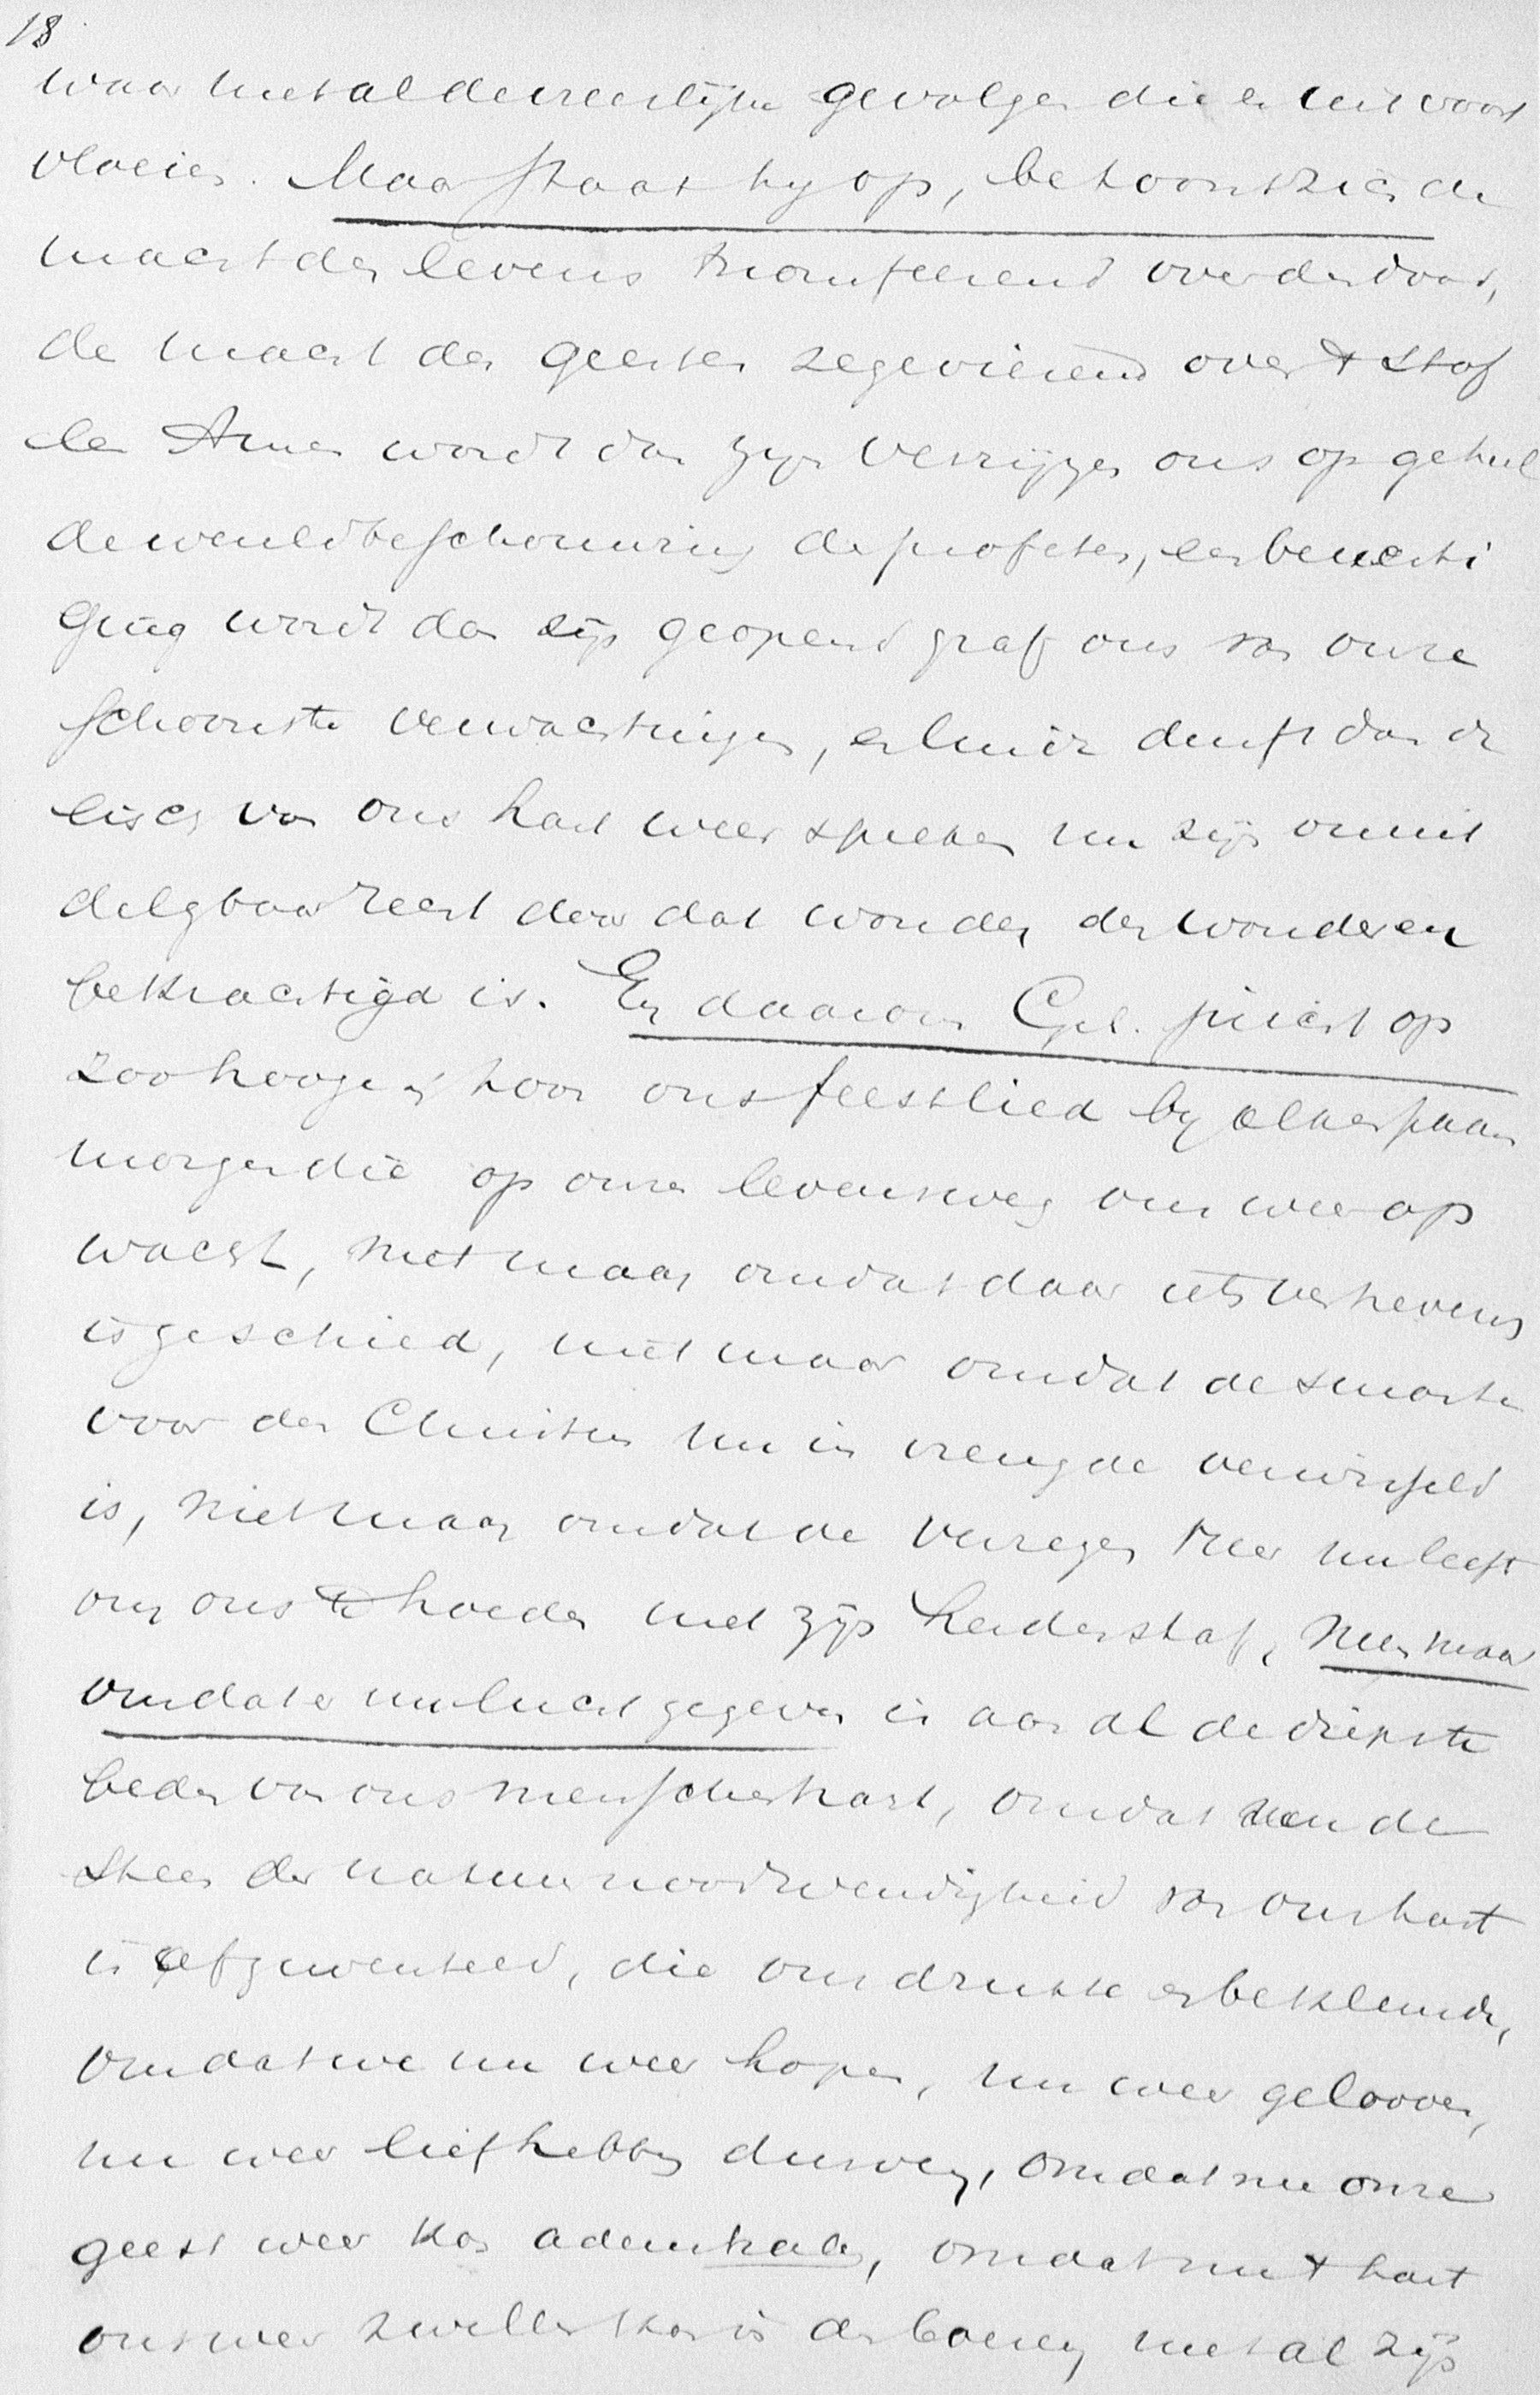 18
waar met al de vreeslijke gevolgen die er uit voort
vloeien. Maar staat hy op, betoont zich de
macht des levens triomfeerend over den dood,
de macht des geestes zegevierend over 't stof
een Amen wordt dan zijn verrijzen ons op geheel
de wereldbeschouwing der profeten, een bevesti
ging wordt dan zijn geopend graf ons van onze
schoonste verwachtingen, en luide durft dan de
eisch van ons hart weer spreken nu zijn onuit
delgbaar recht door dat wonder der wonderen
bekrachtigd is. En daarom Gel. juicht op
zoo hoogen toon ons feestlied by elken paasch
morgen die op onzen levensweg ons weer op
wacht, niet maar omdat daar iets verhevens
is geschied, niet maar omdat de smarte
voor den Christus nu in vreugde verwisseld
is, niet maar omdat de verrezen Heer nu leeft
om ons te hoeden met zijn herderstaf, neen maar
omdat er nu lucht gegeven is aan al de diepste
beden van ons menschenhart, omdat nu de
steen der natuurnoodwendigheid van ons hart
is afgewenteld, die ons drukte en beklemde,
omdat we nu weer hopen, nu weer gelooven,
nu weer liefhebben durven, omdat nu onze
geest weer kan ademhalen, omdat nu 't hart
ons weer zwellen kan in den boezem met al zijn